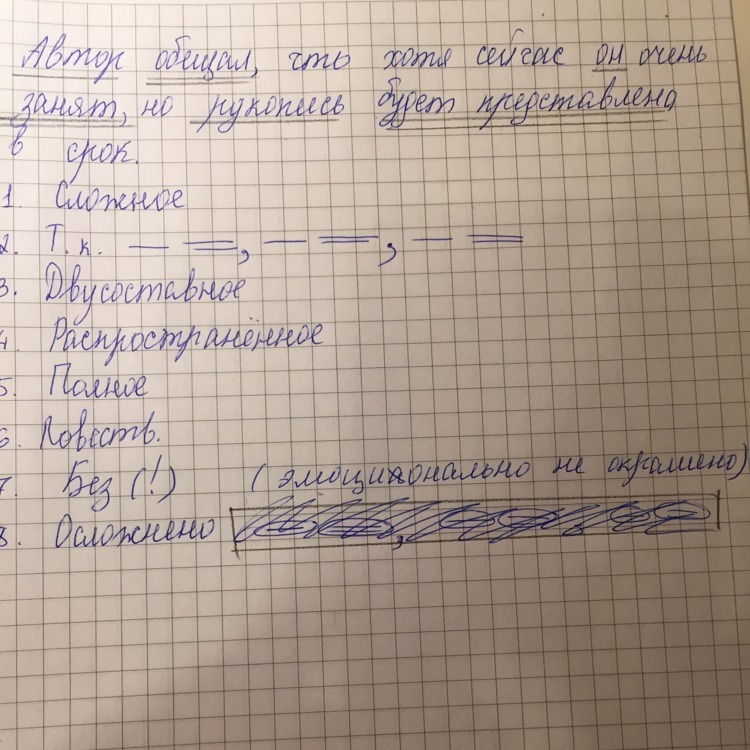 Автор обещал, что хотя сейчас он очень
занят, но рукопись будет представлена
в срок.
1. Сложное
2. Т.к. — =, — =, — =
3. Двусоставное
4. Распространённое
5. Полное
6. Повеств.
7. Без (!) (эмоционально не окрашено)
8. Осложнено